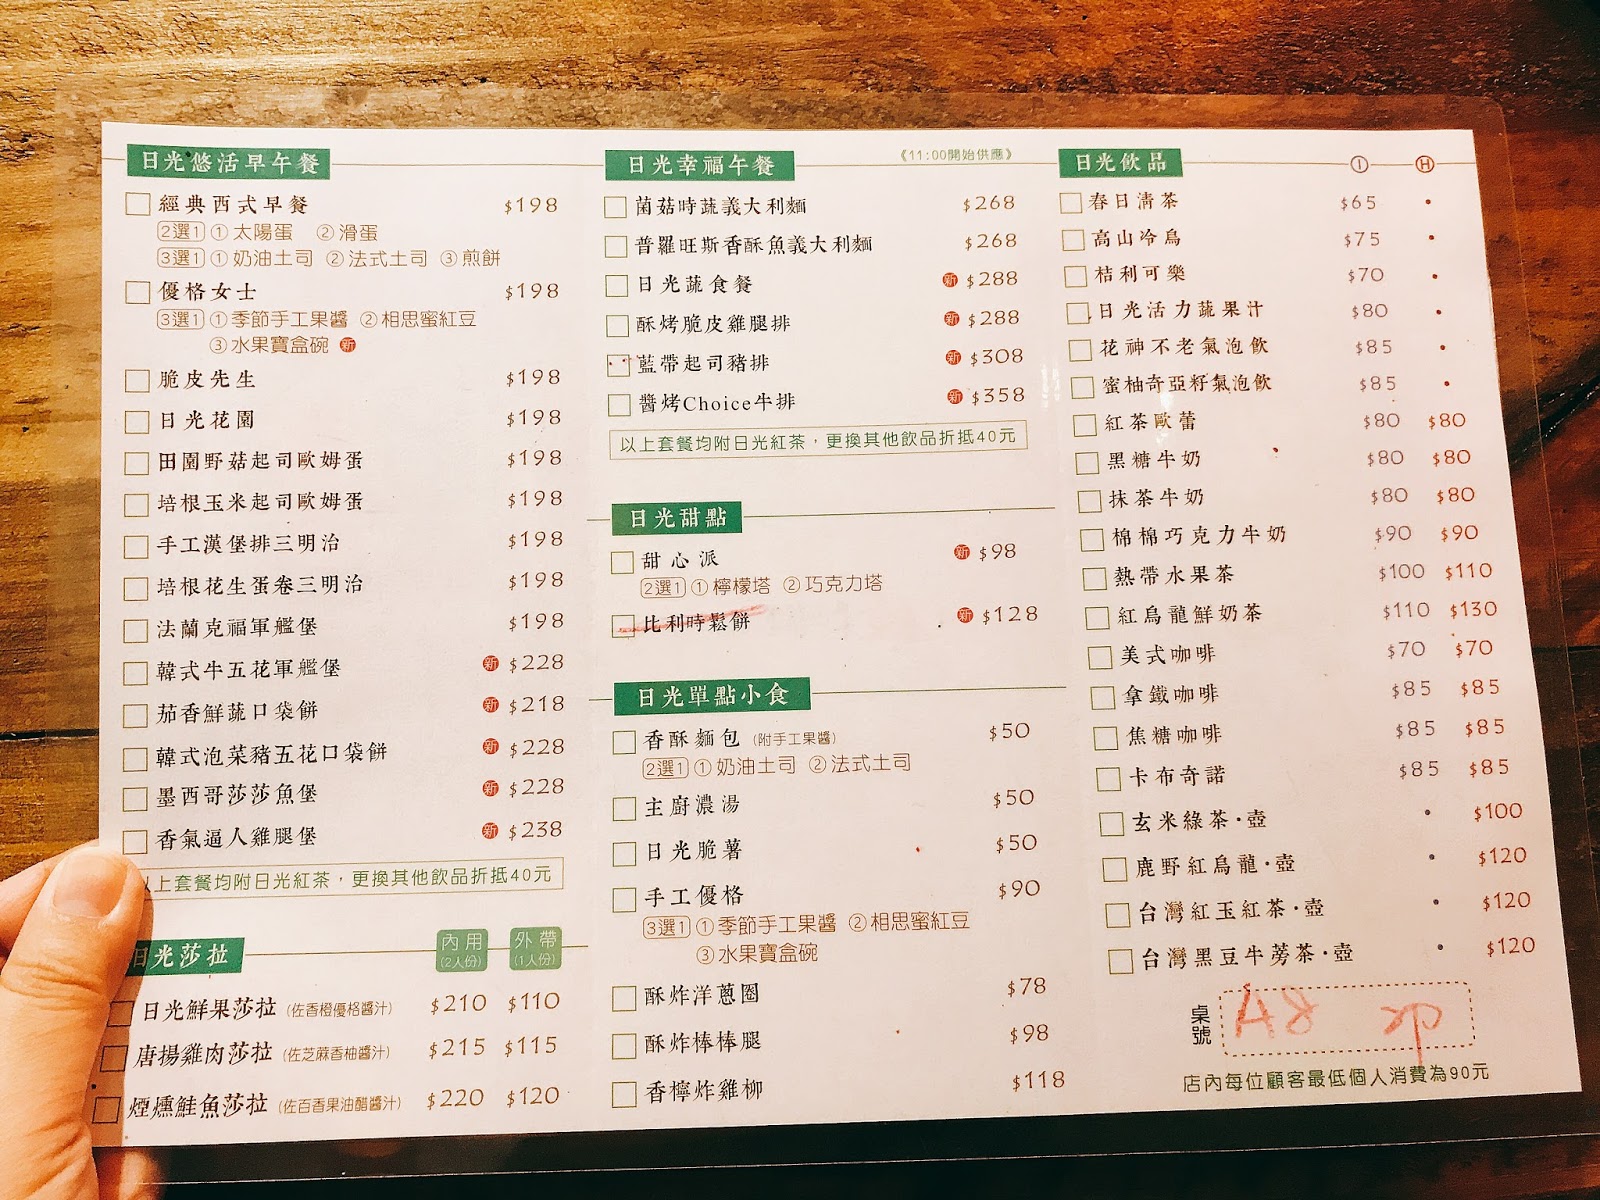 日光悠活早午餐
經典西式早餐 $198
2選1 ①太陽蛋 ②滑蛋
3選1 ①奶油土司 ②法式土司 ③煎餅
優格女士 $198
3選1 ①季節手工果醬 ②相思蜜紅豆
③水果寶盒碗 新
脆皮先生 $198
日光花園 $198
田園野菇起司歐姆蛋 $198
培根玉米起司歐姆蛋 $198
手工漢堡排三明治 $198
培根花生蛋卷三明治 $198
法蘭克福軍艦堡 $198
韓式牛五花軍艦堡 新 $228
茄香鮮蔬口袋餅 新 $218
韓式泡菜豬五花口袋餅 新 $228
墨西哥莎莎魚堡 新 $228
香氣逼人雞腿堡 新 $238
以上套餐均附日光紅茶，更換其他飲品折抵40元
日光莎拉 內用(2人份) 外帶(1人份)
日光鮮果莎拉 (佐香橙優格醬汁) $210 $110
唐揚雞肉莎拉 (佐芝麻香柚醬汁) $215 $115
煙燻鮭魚莎拉 (佐百香果油醋醬汁) $220 $120
日光幸福午餐 《11:00開始供應》
菌菇時蔬義大利麵 $268
普羅旺斯香酥魚義大利麵 $268
日光蔬食餐 新 $288
酥烤脆皮雞腿排 新 $288
藍帶起司豬排 新 $308
醬烤Choice牛排 新 $358
以上套餐均附日光紅茶，更換其他飲品折抵40元
日光甜點
甜心派 新 $98
2選1 ①檸檬塔 ②巧克力塔
比利時鬆餅 新 $128
日光單點小食
香酥麵包 (附手工果醬) $50
2選1 ①奶油土司 ②法式土司
主廚濃湯 $50
日光脆薯 $50
手工優格 $90
3選1 ①季節手工果醬 ②相思蜜紅豆
③水果寶盒碗
酥炸洋蔥圈 $78
酥炸棒棒腿 $98
香檸炸雞柳 $118
日光飲品 Ⓘ Ⓗ
春日清茶 $65 •
高山冷烏 $75 •
桔利可樂 $70 •
日光活力蔬果汁 $80 •
花神不老氣泡飲 $85 •
蜜柚奇亞籽氣泡飲 $85 •
紅茶歐蕾 $80 $80
黑糖牛奶 $80 $80
抹茶牛奶 $80 $80
棉棉巧克力牛奶 $90 $90
熱帶水果茶 $100 $110
紅烏龍鮮奶茶 $110 $130
美式咖啡 $70 $70
拿鐵咖啡 $85 $85
焦糖咖啡 $85 $85
卡布奇諾 $85 $85
玄米綠茶·壺 • $100
鹿野紅烏龍·壺 • $120
台灣紅玉紅茶·壺 • $120
台灣黑豆牛蒡茶·壺 • $120
桌號 A8 2p
店內每位顧客最低個人消費為90元